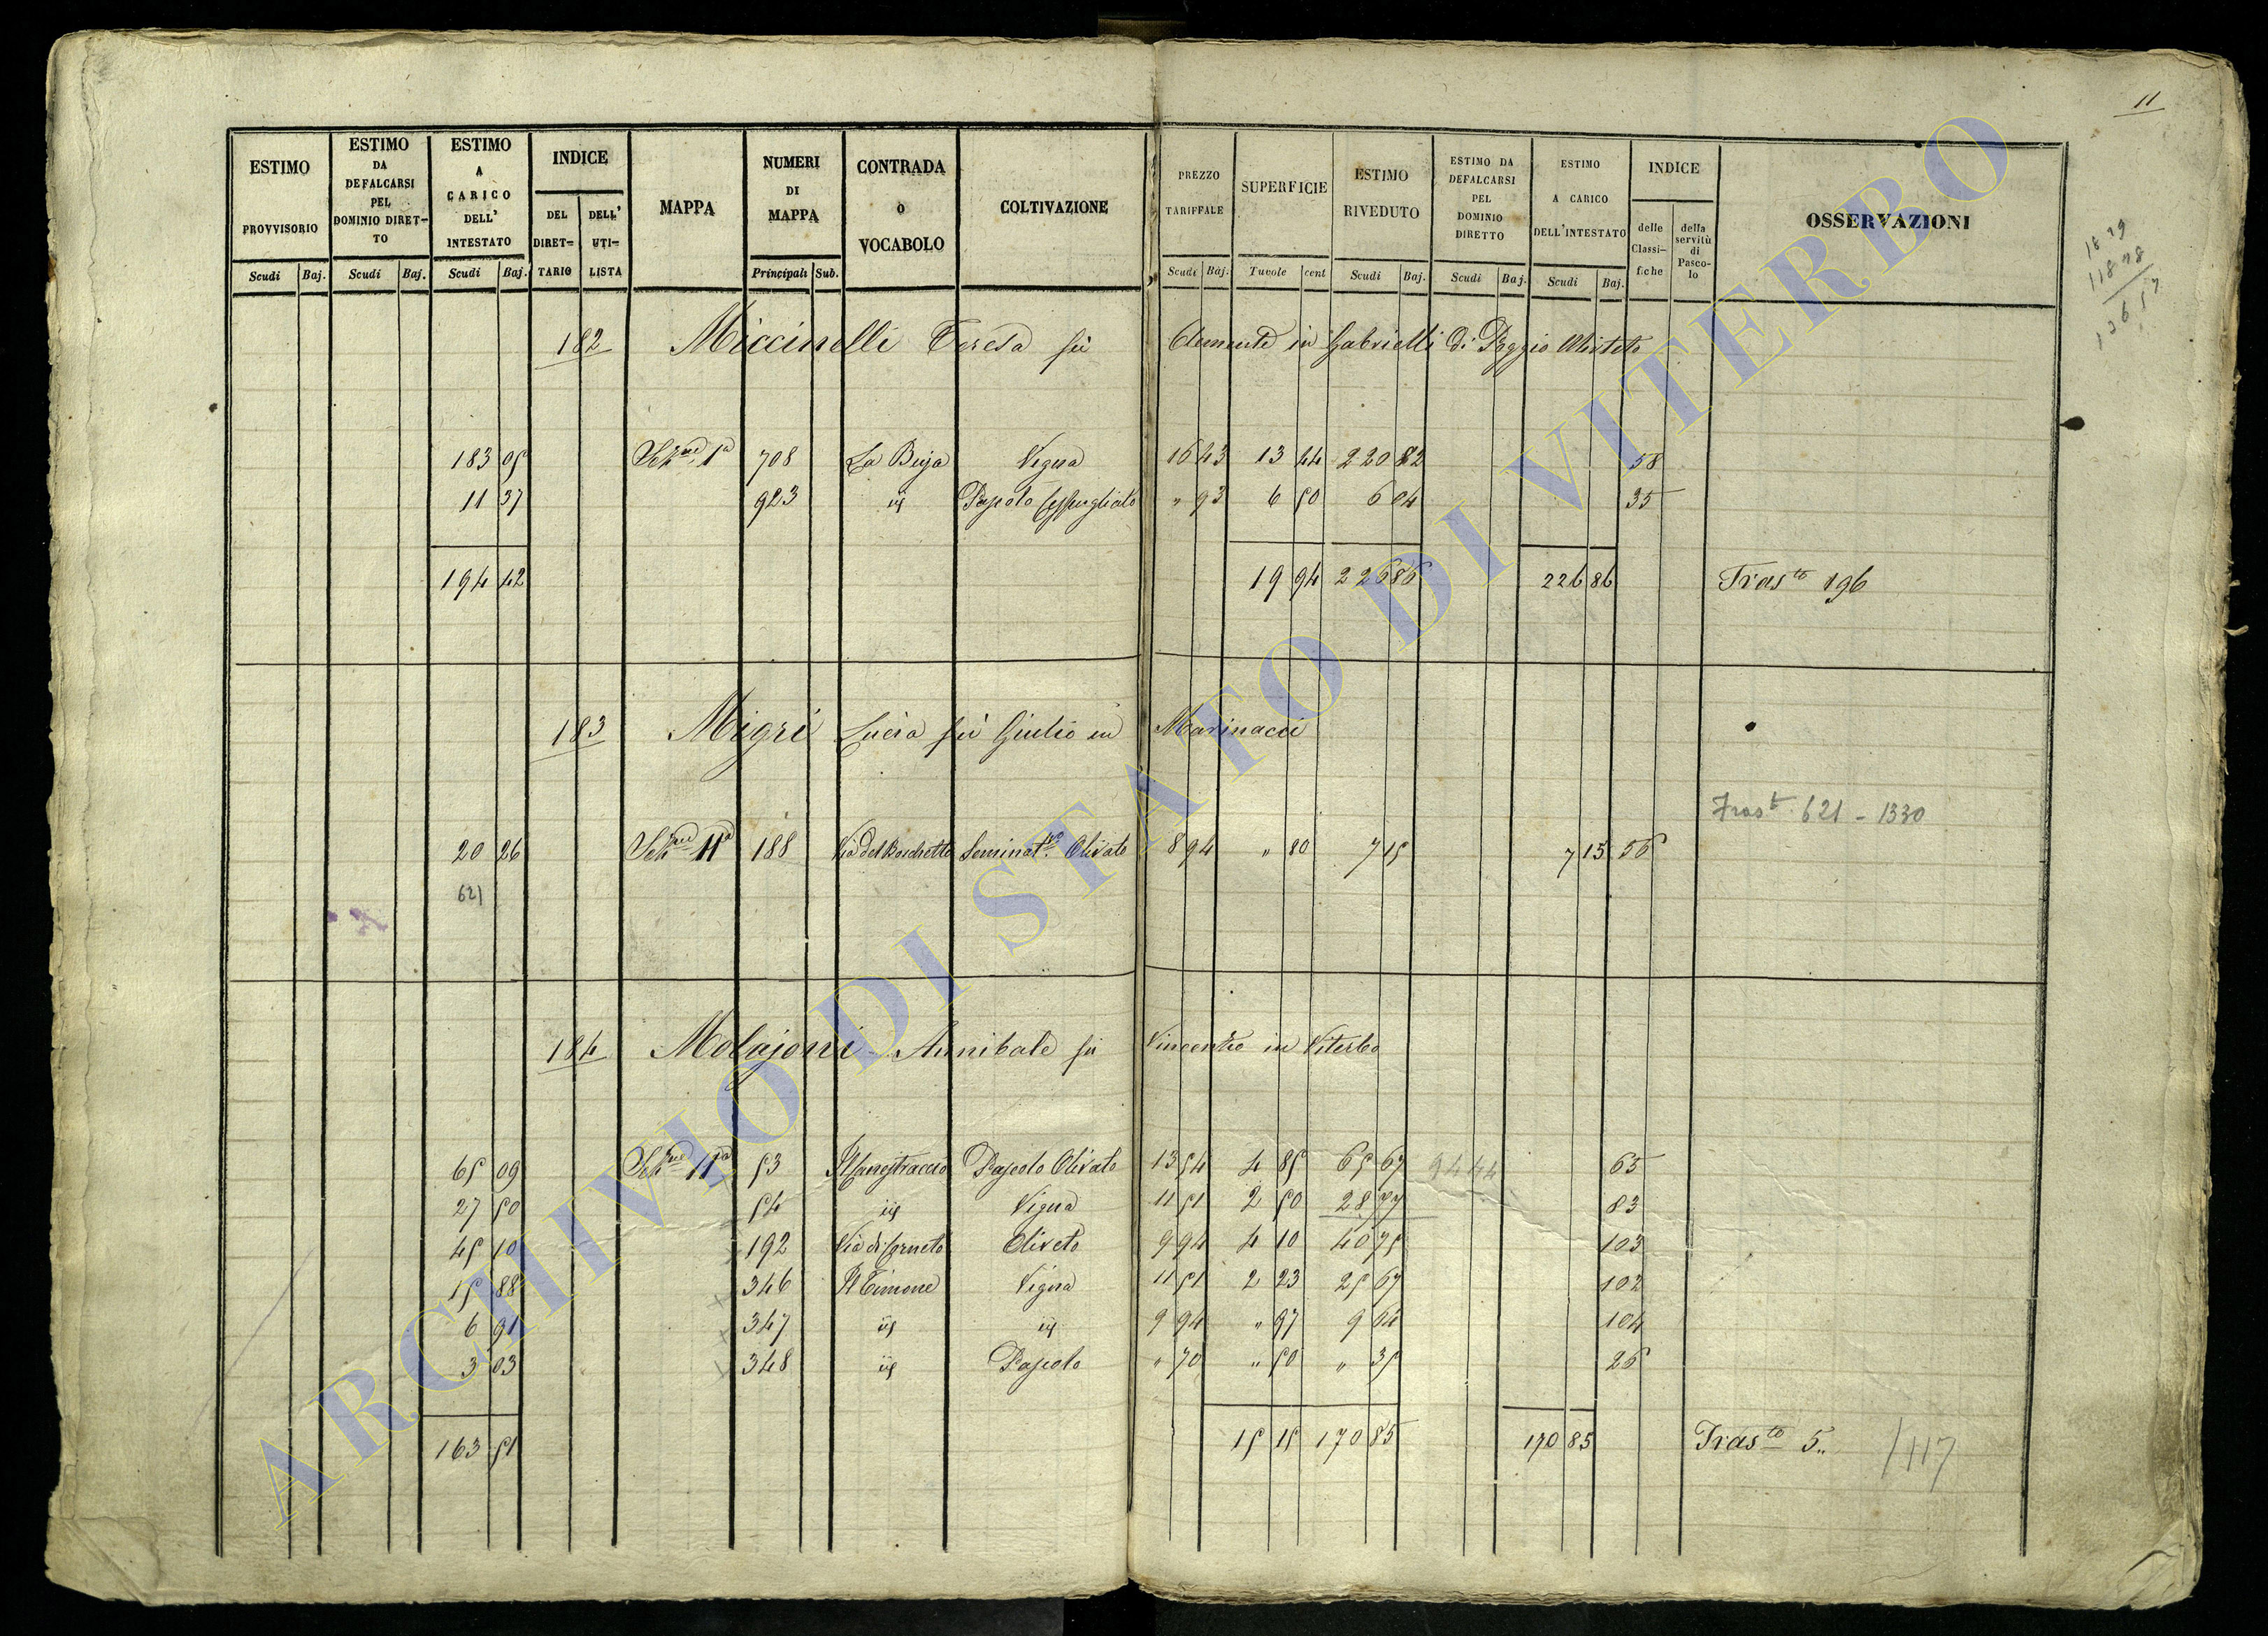 11
ESTIMO PROVVISORIO
ESTIMO DA DEFALCARSI PEL DOMINIO DIRET-TO
ESTIMO A CARICO DELL' INTESTATO
INDICE
DEL DIRET=TARIO
DELL' UTI=LISTA
MAPPA
NUMERI DI MAPPA
CONTRADA O VOCABOLO
COLTIVAZIONE
PREZZO TARIFFALE
SUPERFICIE
ESTIMO RIVEDUTO
ESTIMO DA DEFALCARSI PEL DOMINIO DIRETTO
ESTIMO A CARICO DELL'INTESTATO
INDICE
delle Classi-fiche
della servitù di Pasco-lo
OSSERVAZIONI
Scudi Baj. Scudi Baj. Scudi Baj. Principali Sub. Scudi Baj. Tavole cent Scudi Baj. Scudi Baj. Scudi Baj.
182 Miccinelli Teresa fù Clemente in Gabrielli di Poggio Mirteto
183 05 Sez.ne 1a 708 La Buja Vigna 16 43 13 44 220 82 58
11 37 923 iis Pascolo Cespugliato " 93 6 50 6 04 35
194 42 19 94 226 86 226 86 Tras.to 196
183 Migri Lucia fù Giulio in Marinacci
Trast. 621 - 1330
20 26 Sez.ne 11a 188 Via del Boschetto Seminat.vo Olivato 8 94 " 80 7 15 7 15 56
621
184 Molajoni Annibale fù Vincenzo in Viterbo
65 09 Sez.ne 11a 53 Pascolo Olivato 13 54 4 85 65 67 94 44 65
27 50 54 iis Vigna 11 51 2 50 28 77 83
45 10 192 Via di Corneto Oliveto 9 94 4 10 40 75 103
15 88 346 Il Timone Vigna 11 51 2 23 25 67 102
6 91 347 iis iis 9 94 " 97 9 64 104
3 03 348 iis Pascolo " 70 " 50 " 35 26
163 51 15 15 170 85 170 85 Tras.to 5.. /117
ARCHIVIO DI STATO DI VITERBO